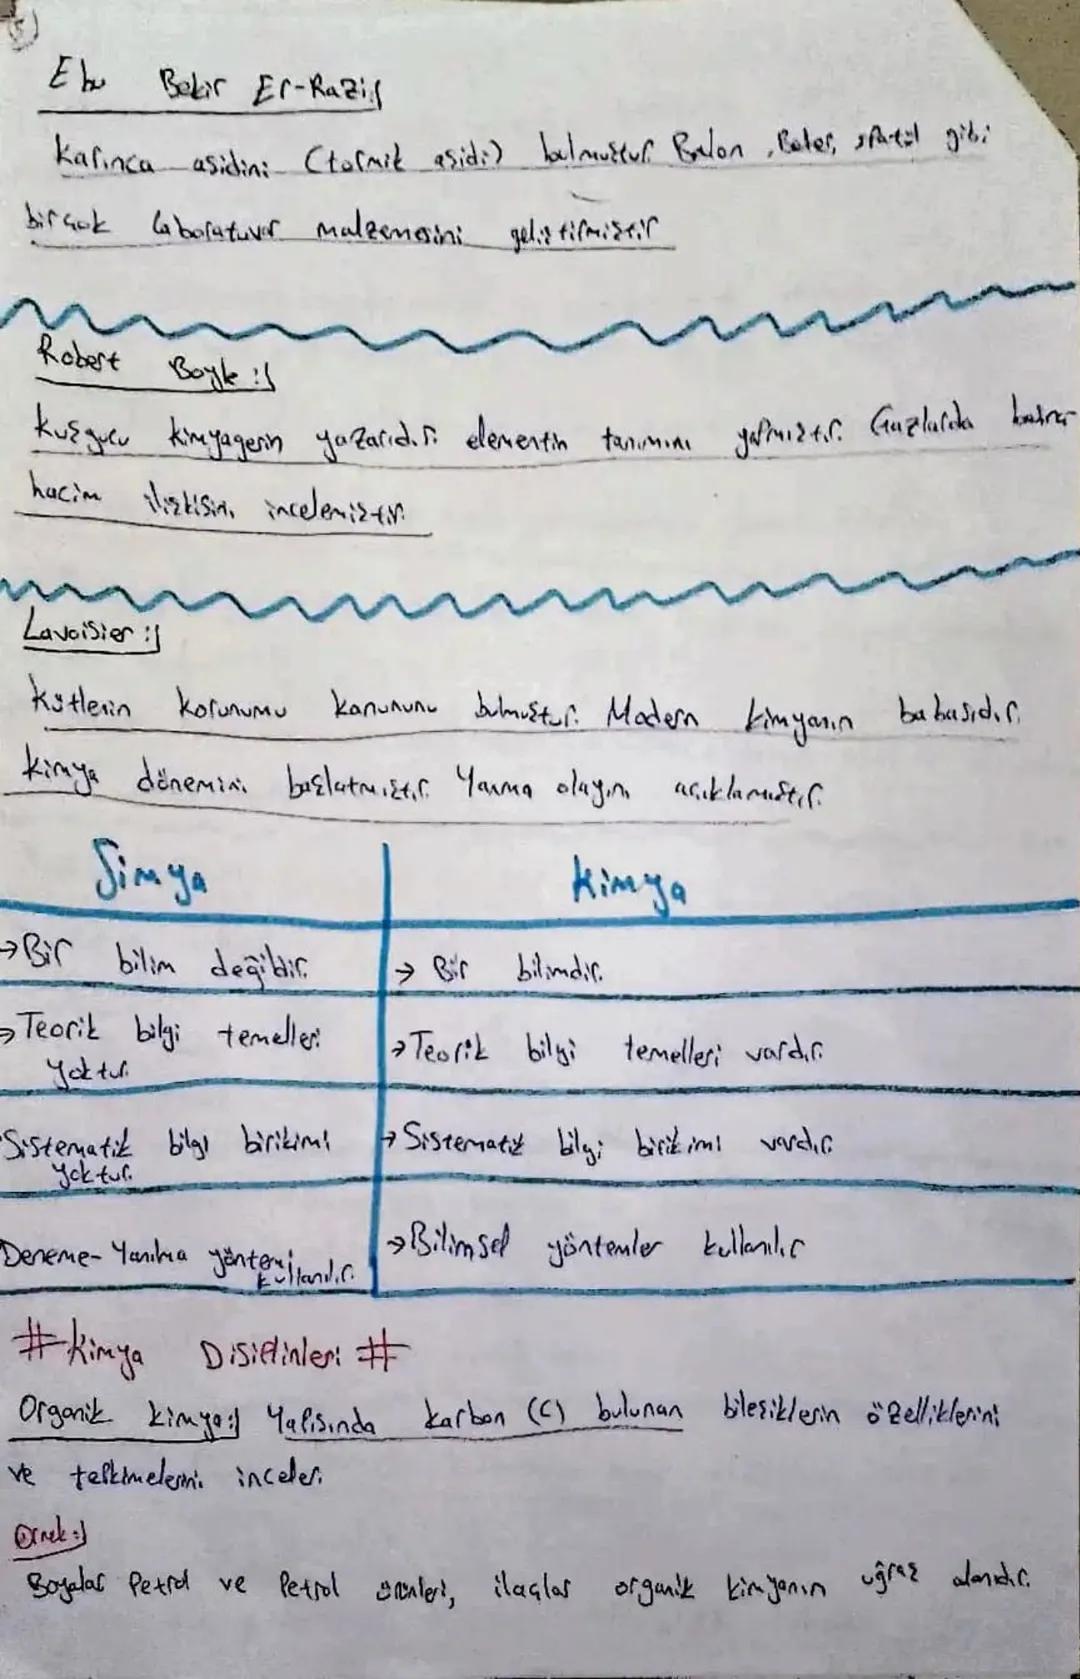 5)
Ebu Bekir Er-Razi:
Karınca asidini (formik asidi) bulmuştur. Balon, Beher, spatül gibi
birçok laboratuvar malzemesini geliştirmiştir
Robert Boyle:
Kuşgucu kimyagerin yazarıdır. elementin tanımını yapmıştır. Gazlarda basınç
hacim ilişkisini incelemiştir.
Lavoisier:
Kütlenin korunumu kanununu bulmuştur. Modern kimyanın babasıdır.
kimya dönemini başlatmıştır. Yanma olayını açıklamıştır.
Simya Kimya
→ Bir bilim değildir. → Bir bilimdir.
→ Teorik bilgi temelleri → Teorik bilgi temelleri vardır.
yoktur.
Sistematik bilgi birikimi → Sistematik bilgi birikimi vardır.
yoktur.
Deneme-Yanılma yöntemi → Bilimsel yöntemler kullanılır
kullanılır.
# Kimya Disiplinleri #
Organik kimya: Yapısında karbon (C) bulunan bileşiklerin özelliklerini
ve tepkimelerini inceler.
Örnek:
Boyalar Petrol ve Petrol ürünleri, ilaçlar organik kimyanın uğraş alanıdır.